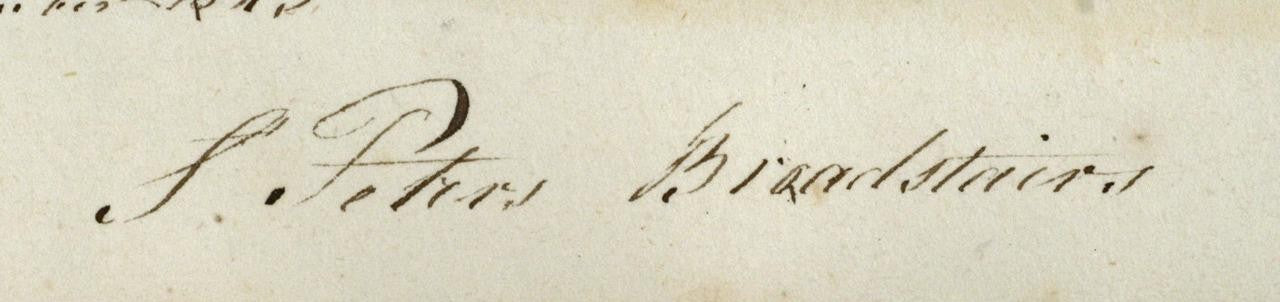 S. Peters Broadstairs